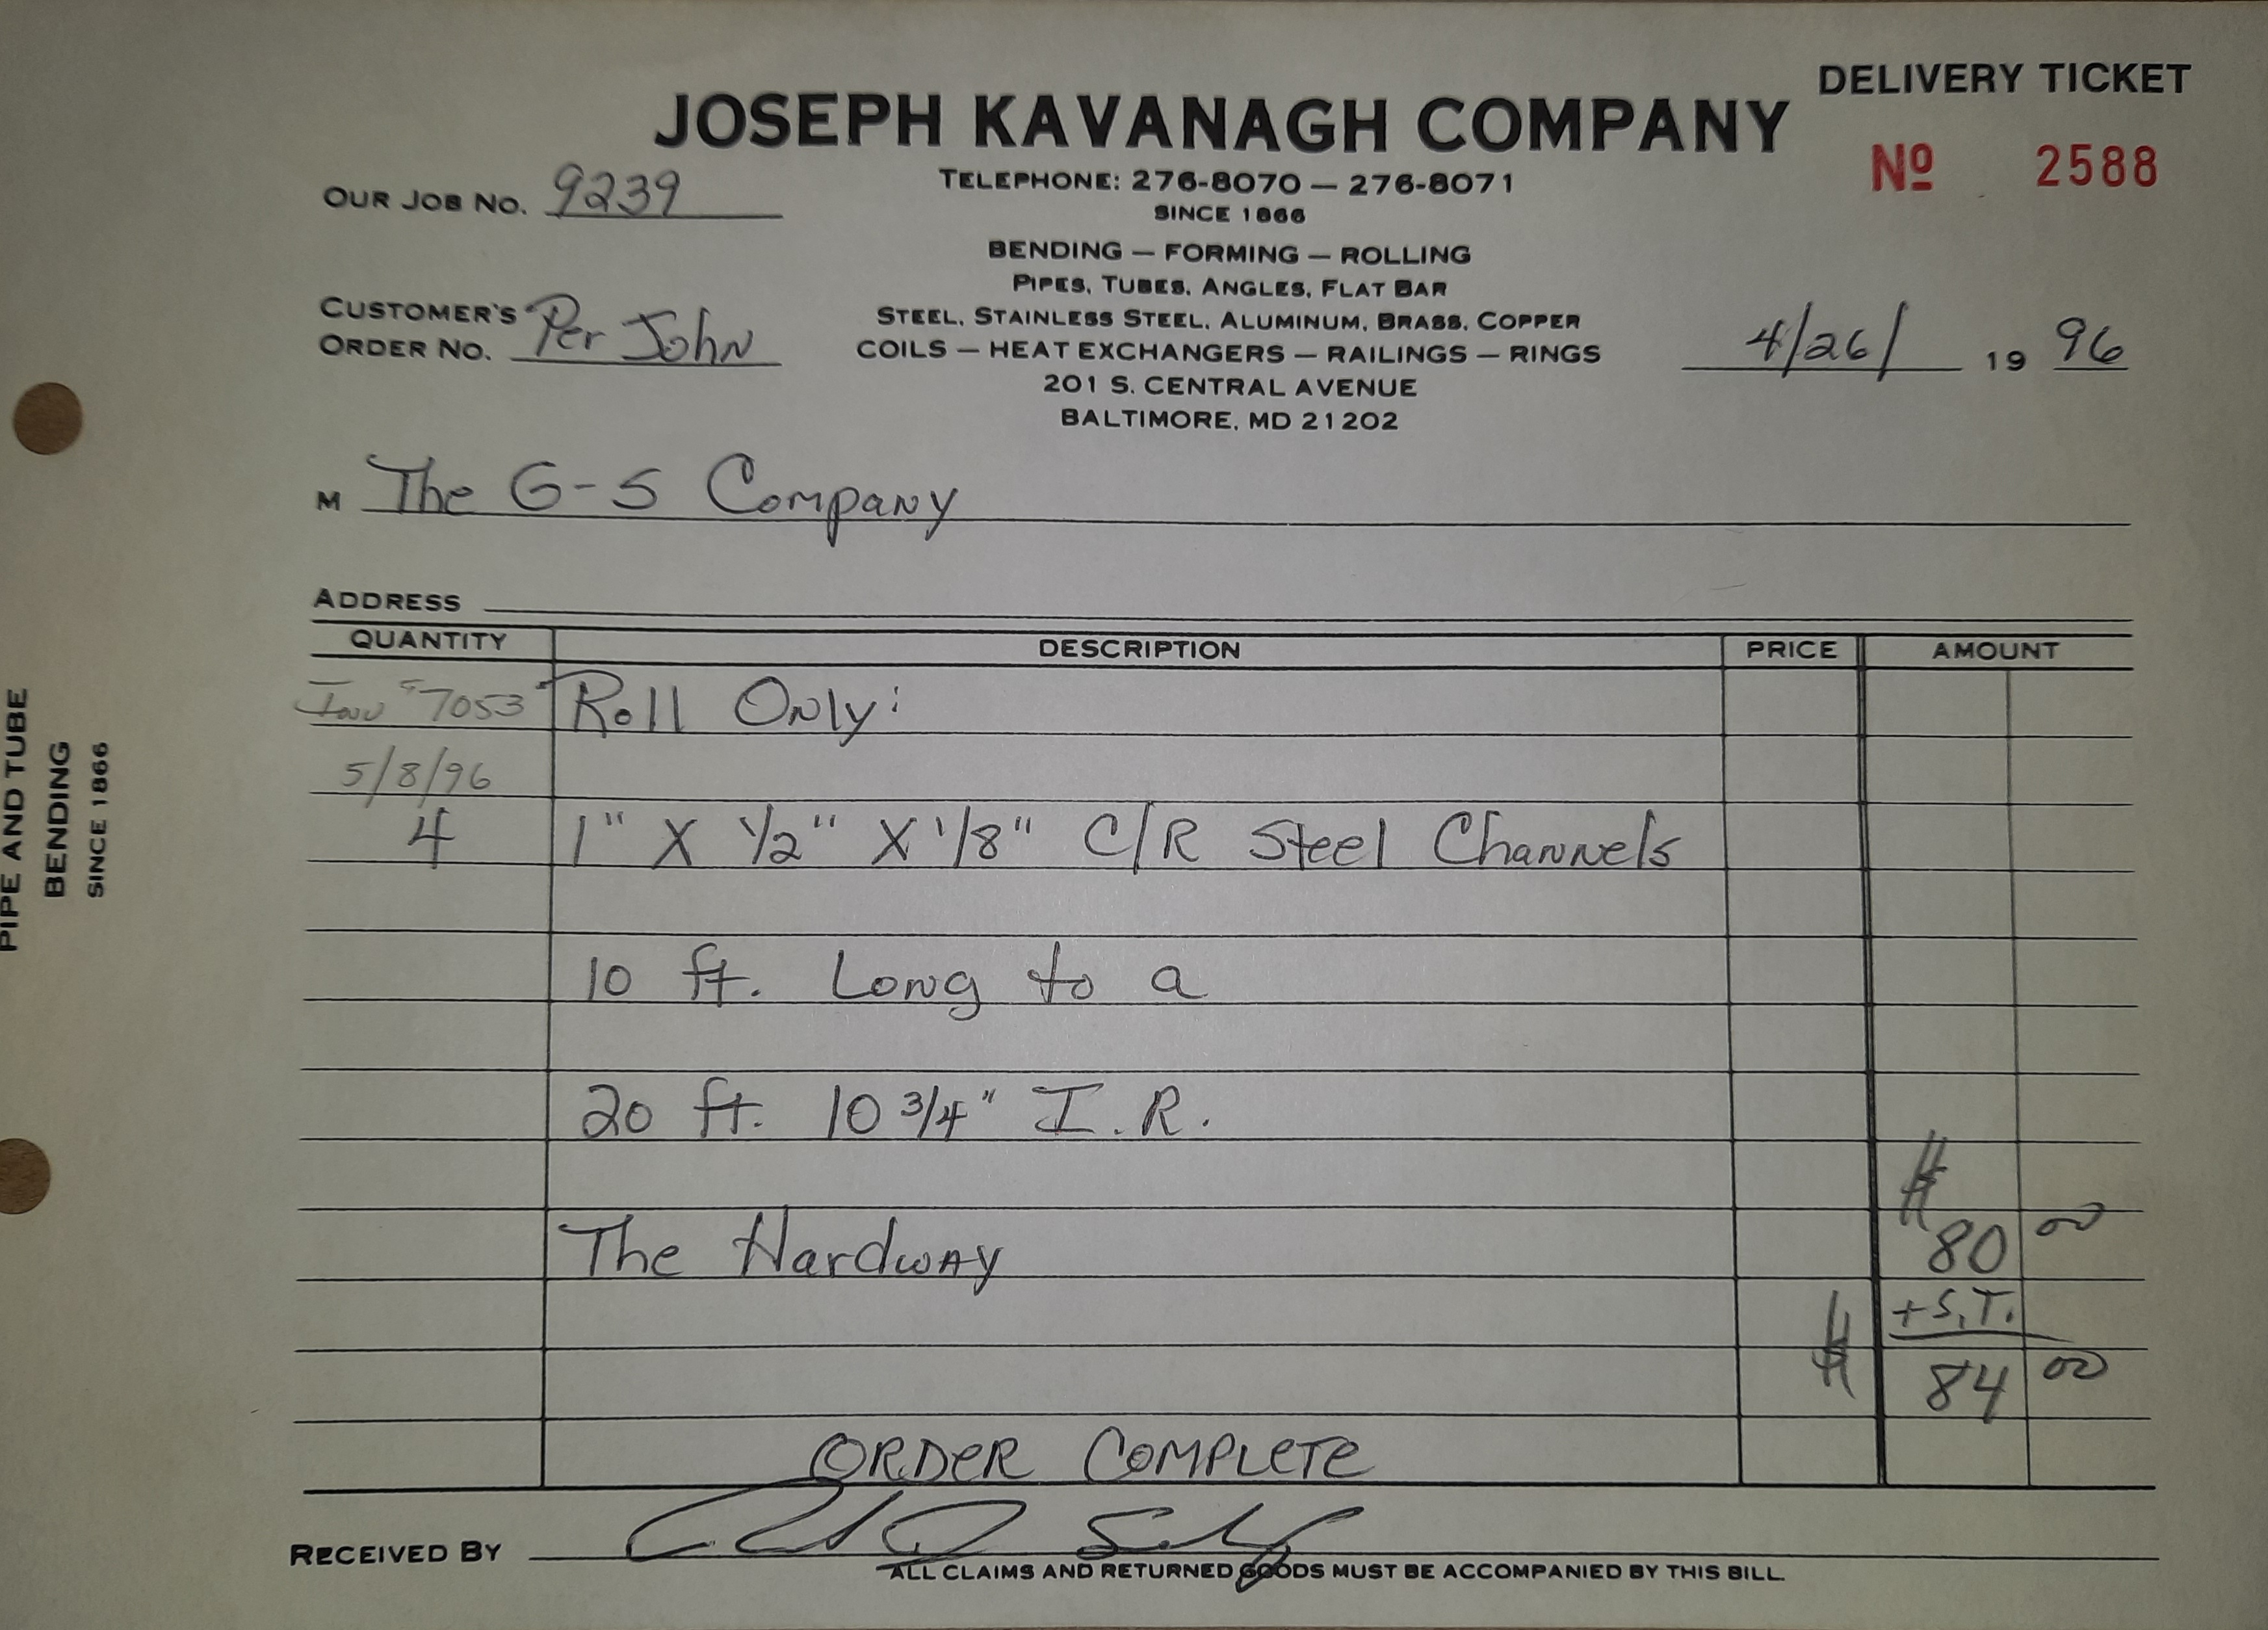 DELIVERY TICKET
JOSEPH KAVANAGH COMPANY
No 2588
OUR JOB NO. 9239
TELEPHONE: 276-8070 — 276-8071
SINCE 1866
BENDING — FORMING — ROLLING
PIPES, TUBES, ANGLES, FLAT BAR
CUSTOMER'S ORDER NO. Per John
STEEL, STAINLESS STEEL, ALUMINUM, BRASS, COPPER
4/26/ 19 96
COILS — HEAT EXCHANGERS — RAILINGS — RINGS
201 S. CENTRAL AVENUE
BALTIMORE, MD 21202
M The G-S Company
ADDRESS
QUANTITY DESCRIPTION PRICE AMOUNT
Inv # 7053 Roll Only:
5/8/96
4 1" X 1/2" X 1/8" C/R Steel Channels
10 ft. Long to a
20 ft. 10 3/4" I.R.
The Hardway $ 80 00
+S.T.
$ 84 00
ORDER COMPLETE
RECEIVED BY
ALL CLAIMS AND RETURNED GOODS MUST BE ACCOMPANIED BY THIS BILL.
PIPE AND TUBE
BENDING
SINCE 1866